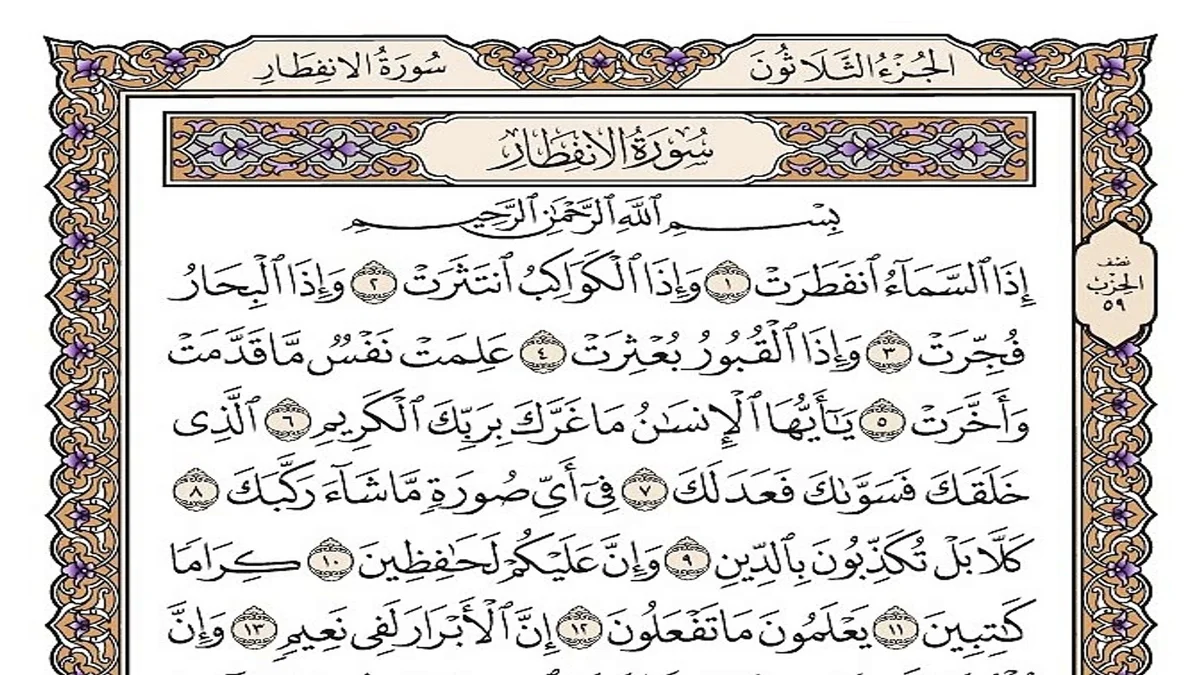 الجُزْءُ الثَّلَاثُونَ
سُورَةُ الِانفِطَارِ
سُورَةُ الِانفِطَارِ
بِسْمِ ٱللَّهِ ٱلرَّحْمَٰنِ ٱلرَّحِيمِ
إِذَا ٱلسَّمَآءُ ٱنفَطَرَتْ ١ وَإِذَا ٱلْكَوَاكِبُ ٱنتَثَرَتْ ٢ وَإِذَا ٱلْبِحَارُ
فُجِّرَتْ ٣ وَإِذَا ٱلْقُبُورُ بُعْثِرَتْ ٤ عَلِمَتْ نَفْسٌ مَّا قَدَّمَتْ
وَأَخَّرَتْ ٥ يَٰٓأَيُّهَا ٱلْإِنسَٰنُ مَا غَرَّكَ بِرَبِّكَ ٱلْكَرِيمِ ٦ ٱلَّذِى
خَلَقَكَ فَسَوَّىٰكَ فَعَدَلَكَ ٧ فِىٓ أَىِّ صُورَةٍ مَّا شَآءَ رَكَّبَكَ ٨
كَلَّا بَلْ تُكَذِّبُونَ بِٱلدِّينِ ٩ وَإِنَّ عَلَيْكُمْ لَحَٰفِظِينَ ١٠ كِرَامًا
كَٰتِبِينَ ١١ يَعْلَمُونَ مَا تَفْعَلُونَ ١٢ إِنَّ ٱلْأَبْرَارَ لَفِى نَعِيمٍ ١٣ وَإِنَّ
نصف
الحزب
٥٩